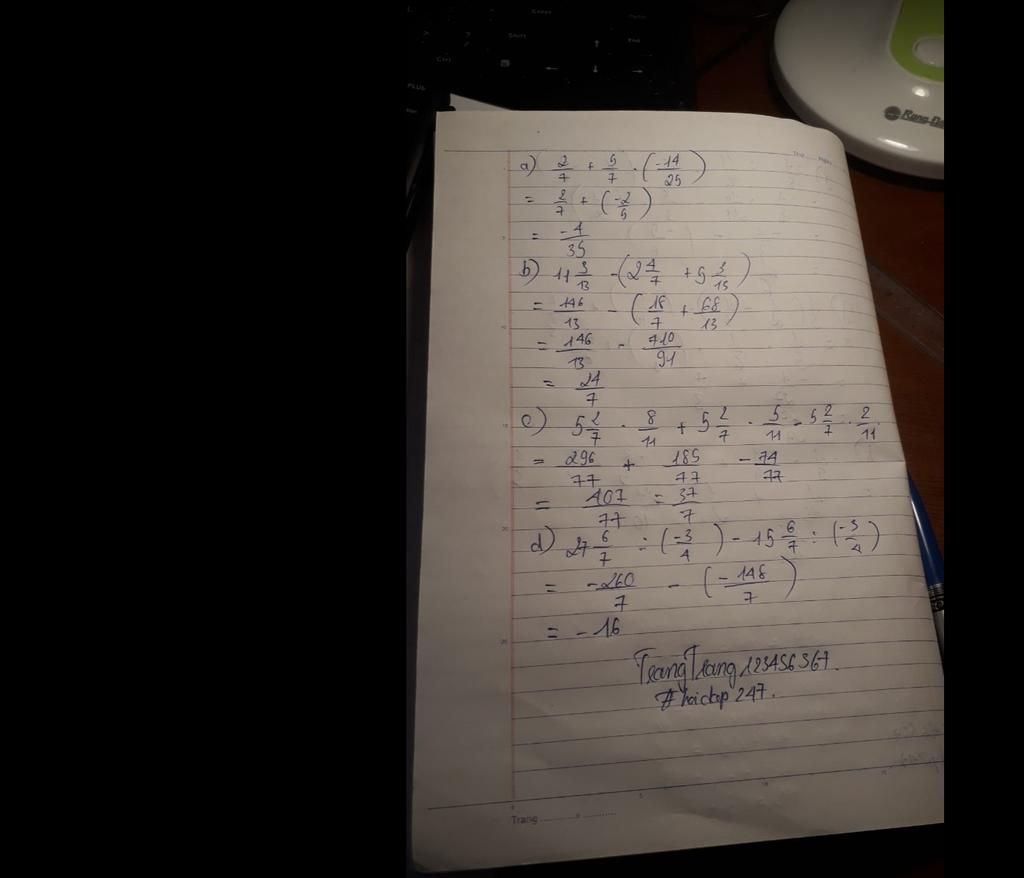 Shift
Ctrl
Rang Da
a) 2/7 + 5/7 . (-14/25)
= 2/7 + (-2/5)
= -4/35
b) 11 3/13 - (2 4/7 + 5 3/13)
= 146/13 - (18/7 + 68/13)
= 146/13 - 710/91
= 24/7
c) 5 2/7 . 8/11 + 5 2/7 . 5/11 - 5 2/7 . 2/11
= 296/77 + 185/77 - 74/77
= 407/77 = 37/7
d) 27 6/7 : (-3/4) - 15 6/7 : (-3/4)
= -260/7 - (-148/7)
= -16
TrangTrang123456367.
#hoidap247.
Trang